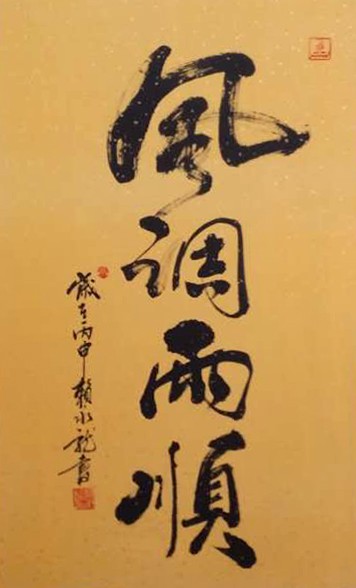 風調雨順
歲在丙申賴水龍書